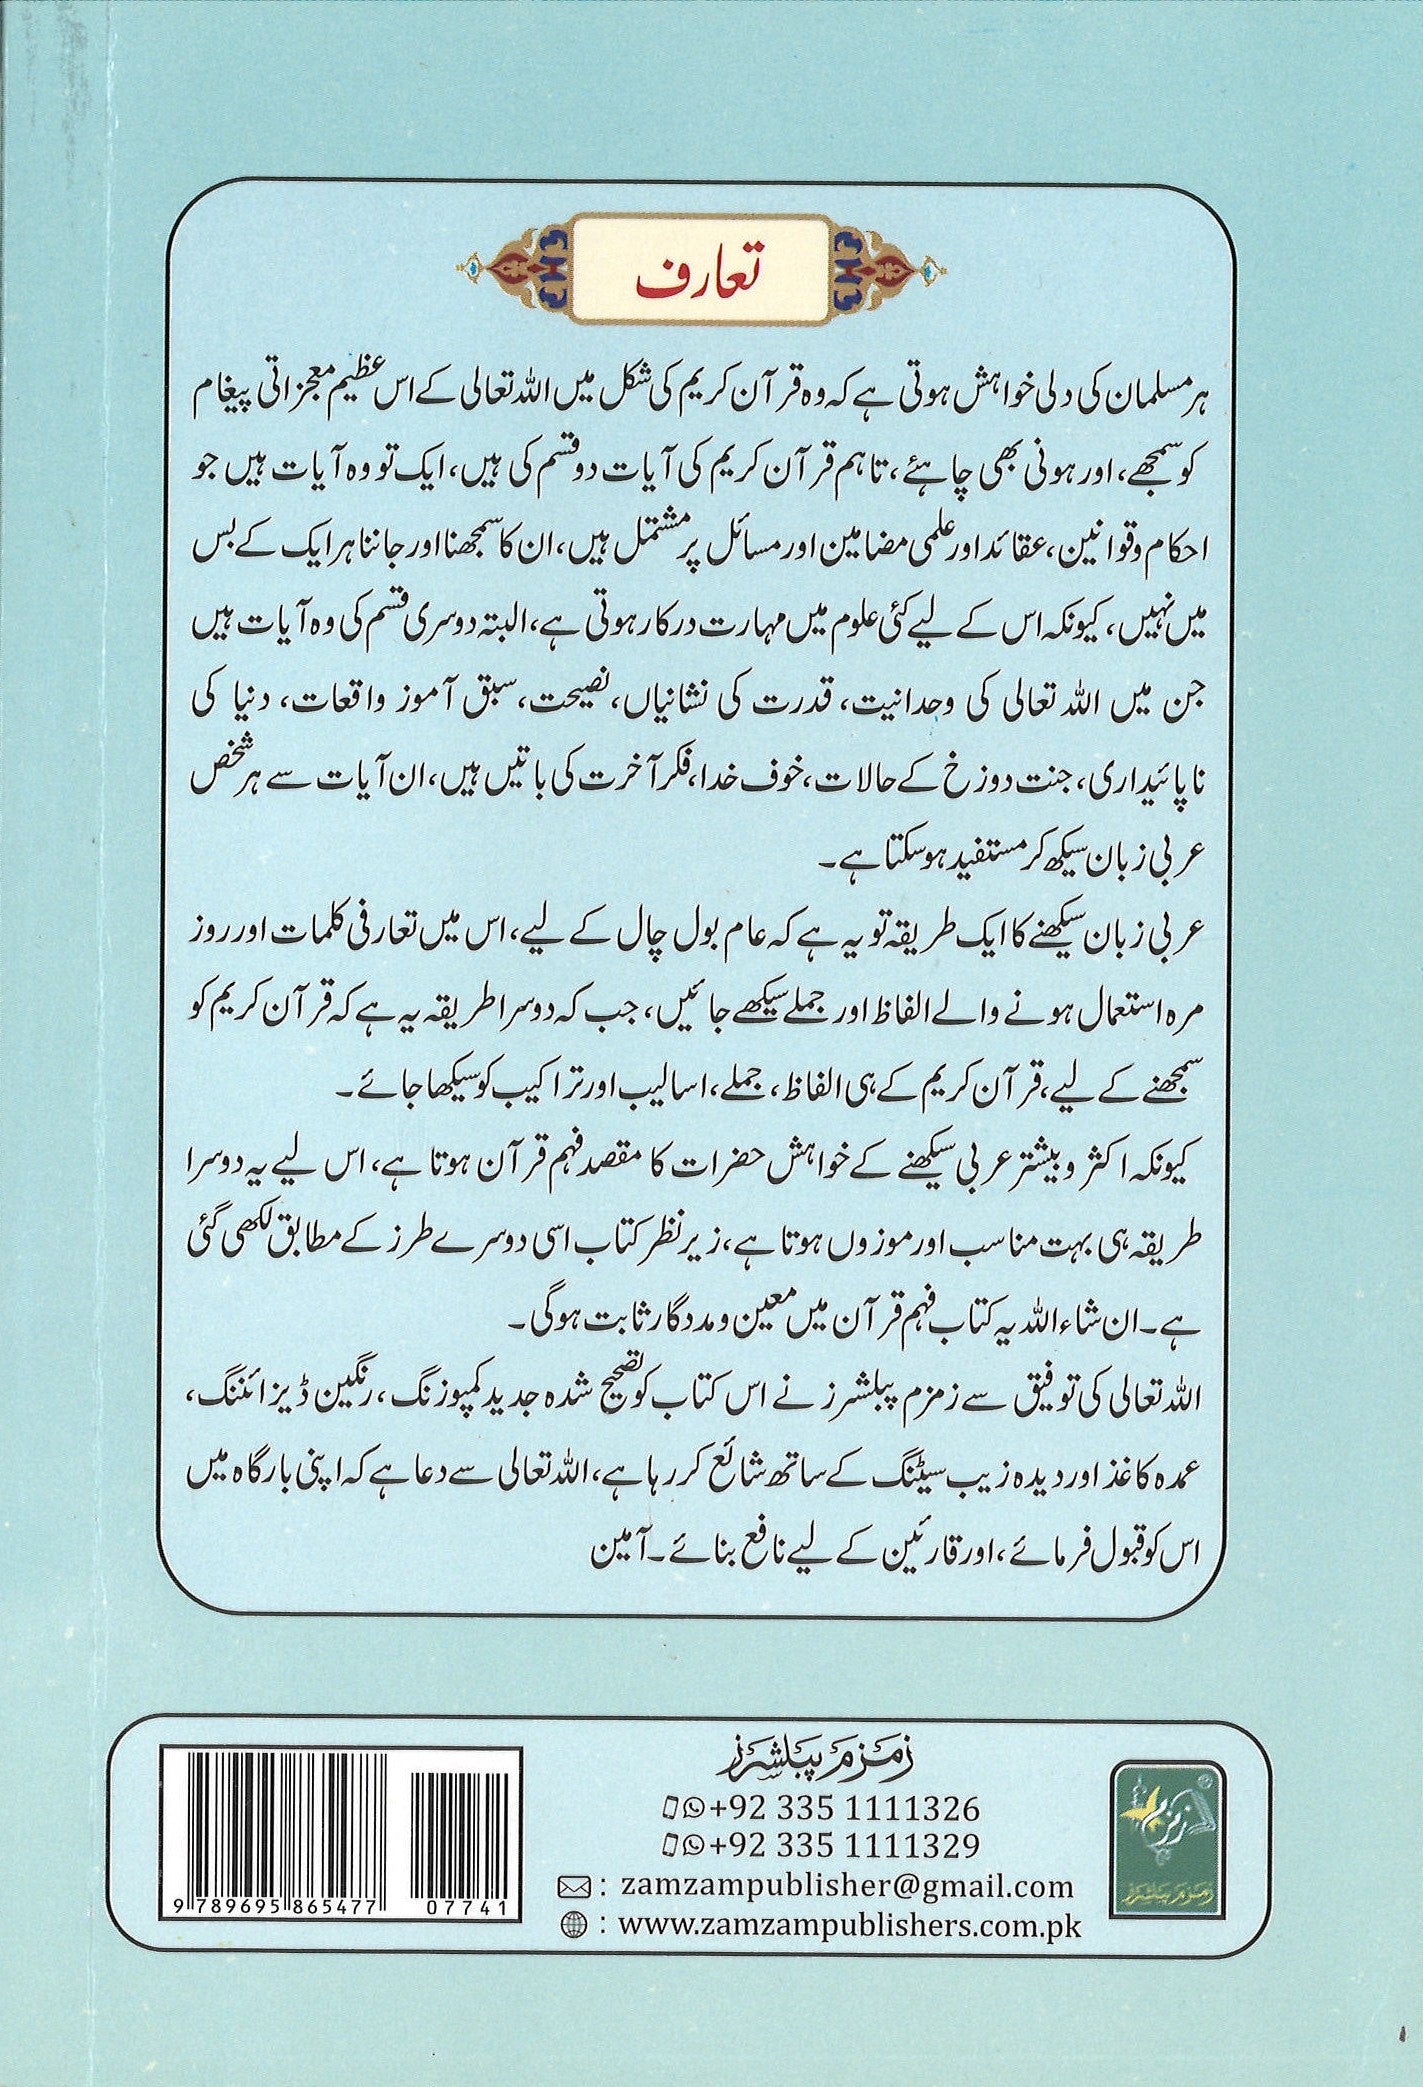 تعارف
ہر مسلمان کی دلی خواہش ہوتی ہے کہ وہ قرآن کریم کی شکل میں اللہ تعالی کے اس عظیم معجزاتی پیغام
کو سمجھے، اور ہونی بھی چاہئے، تاہم قرآن کریم کی آیات دو قسم کی ہیں، ایک تو وہ آیات ہیں جو
احکام وقوانین، عقائد اور علمی مضامین اور مسائل پر مشتمل ہیں، ان کا سمجھنا اور جاننا ہر ایک کے بس
میں نہیں، کیونکہ اس کے لیے کئی علوم میں مہارت درکار ہوتی ہے، البتہ دوسری قسم کی وہ آیات ہیں
جن میں اللہ تعالی کی وحدانیت، قدرت کی نشانیاں، نصیحت، سبق آموز واقعات، دنیا کی
ناپائیداری، جنت دوزخ کے حالات، خوف خدا، فکر آخرت کی باتیں ہیں، ان آیات سے ہر شخص
عربی زبان سیکھ کر مستفید ہو سکتا ہے۔
عربی زبان سیکھنے کا ایک طریقہ تو یہ ہے کہ عام بول چال کے لیے، اس میں تعارفی کلمات اور روز
مرہ استعمال ہونے والے الفاظ اور جملے سیکھے جائیں، جب کہ دوسرا طریقہ یہ ہے کہ قرآن کریم کو
سمجھنے کے لیے، قرآن کریم کے ہی الفاظ، جملے، اسالیب اور تراکیب کو سیکھا جائے۔
کیونکہ اکثر و بیشتر عربی سیکھنے کے خواہش حضرات کا مقصد فہم قرآن ہوتا ہے، اس لیے یہ دوسرا
طریقہ ہی بہت مناسب اور موزوں ہوتا ہے، زیر نظر کتاب اسی دوسرے طرز کے مطابق لکھی گئی
ہے۔ ان شاء اللہ یہ کتاب فہم قرآن میں معین و مددگار ثابت ہوگی۔
اللہ تعالی کی توفیق سے زمزم پبلشرز نے اس کتاب کو تصحیح شدہ جدید کمپوزنگ، رنگین ڈیزائننگ،
عمدہ کاغذ اور دیدہ زیب سیٹنگ کے ساتھ شائع کر رہا ہے، اللہ تعالی سے دعا ہے کہ اپنی بارگاہ میں
اس کو قبول فرمائے، اور قارئین کے لیے نافع بنائے۔ آمین
زمزم پبلشرز
+92 335 1111326
+92 335 1111329
: zamzampublisher@gmail.com
: www.zamzampublishers.com.pk
9 789695 865477
07741
زمزم
زمزم پبلشرز